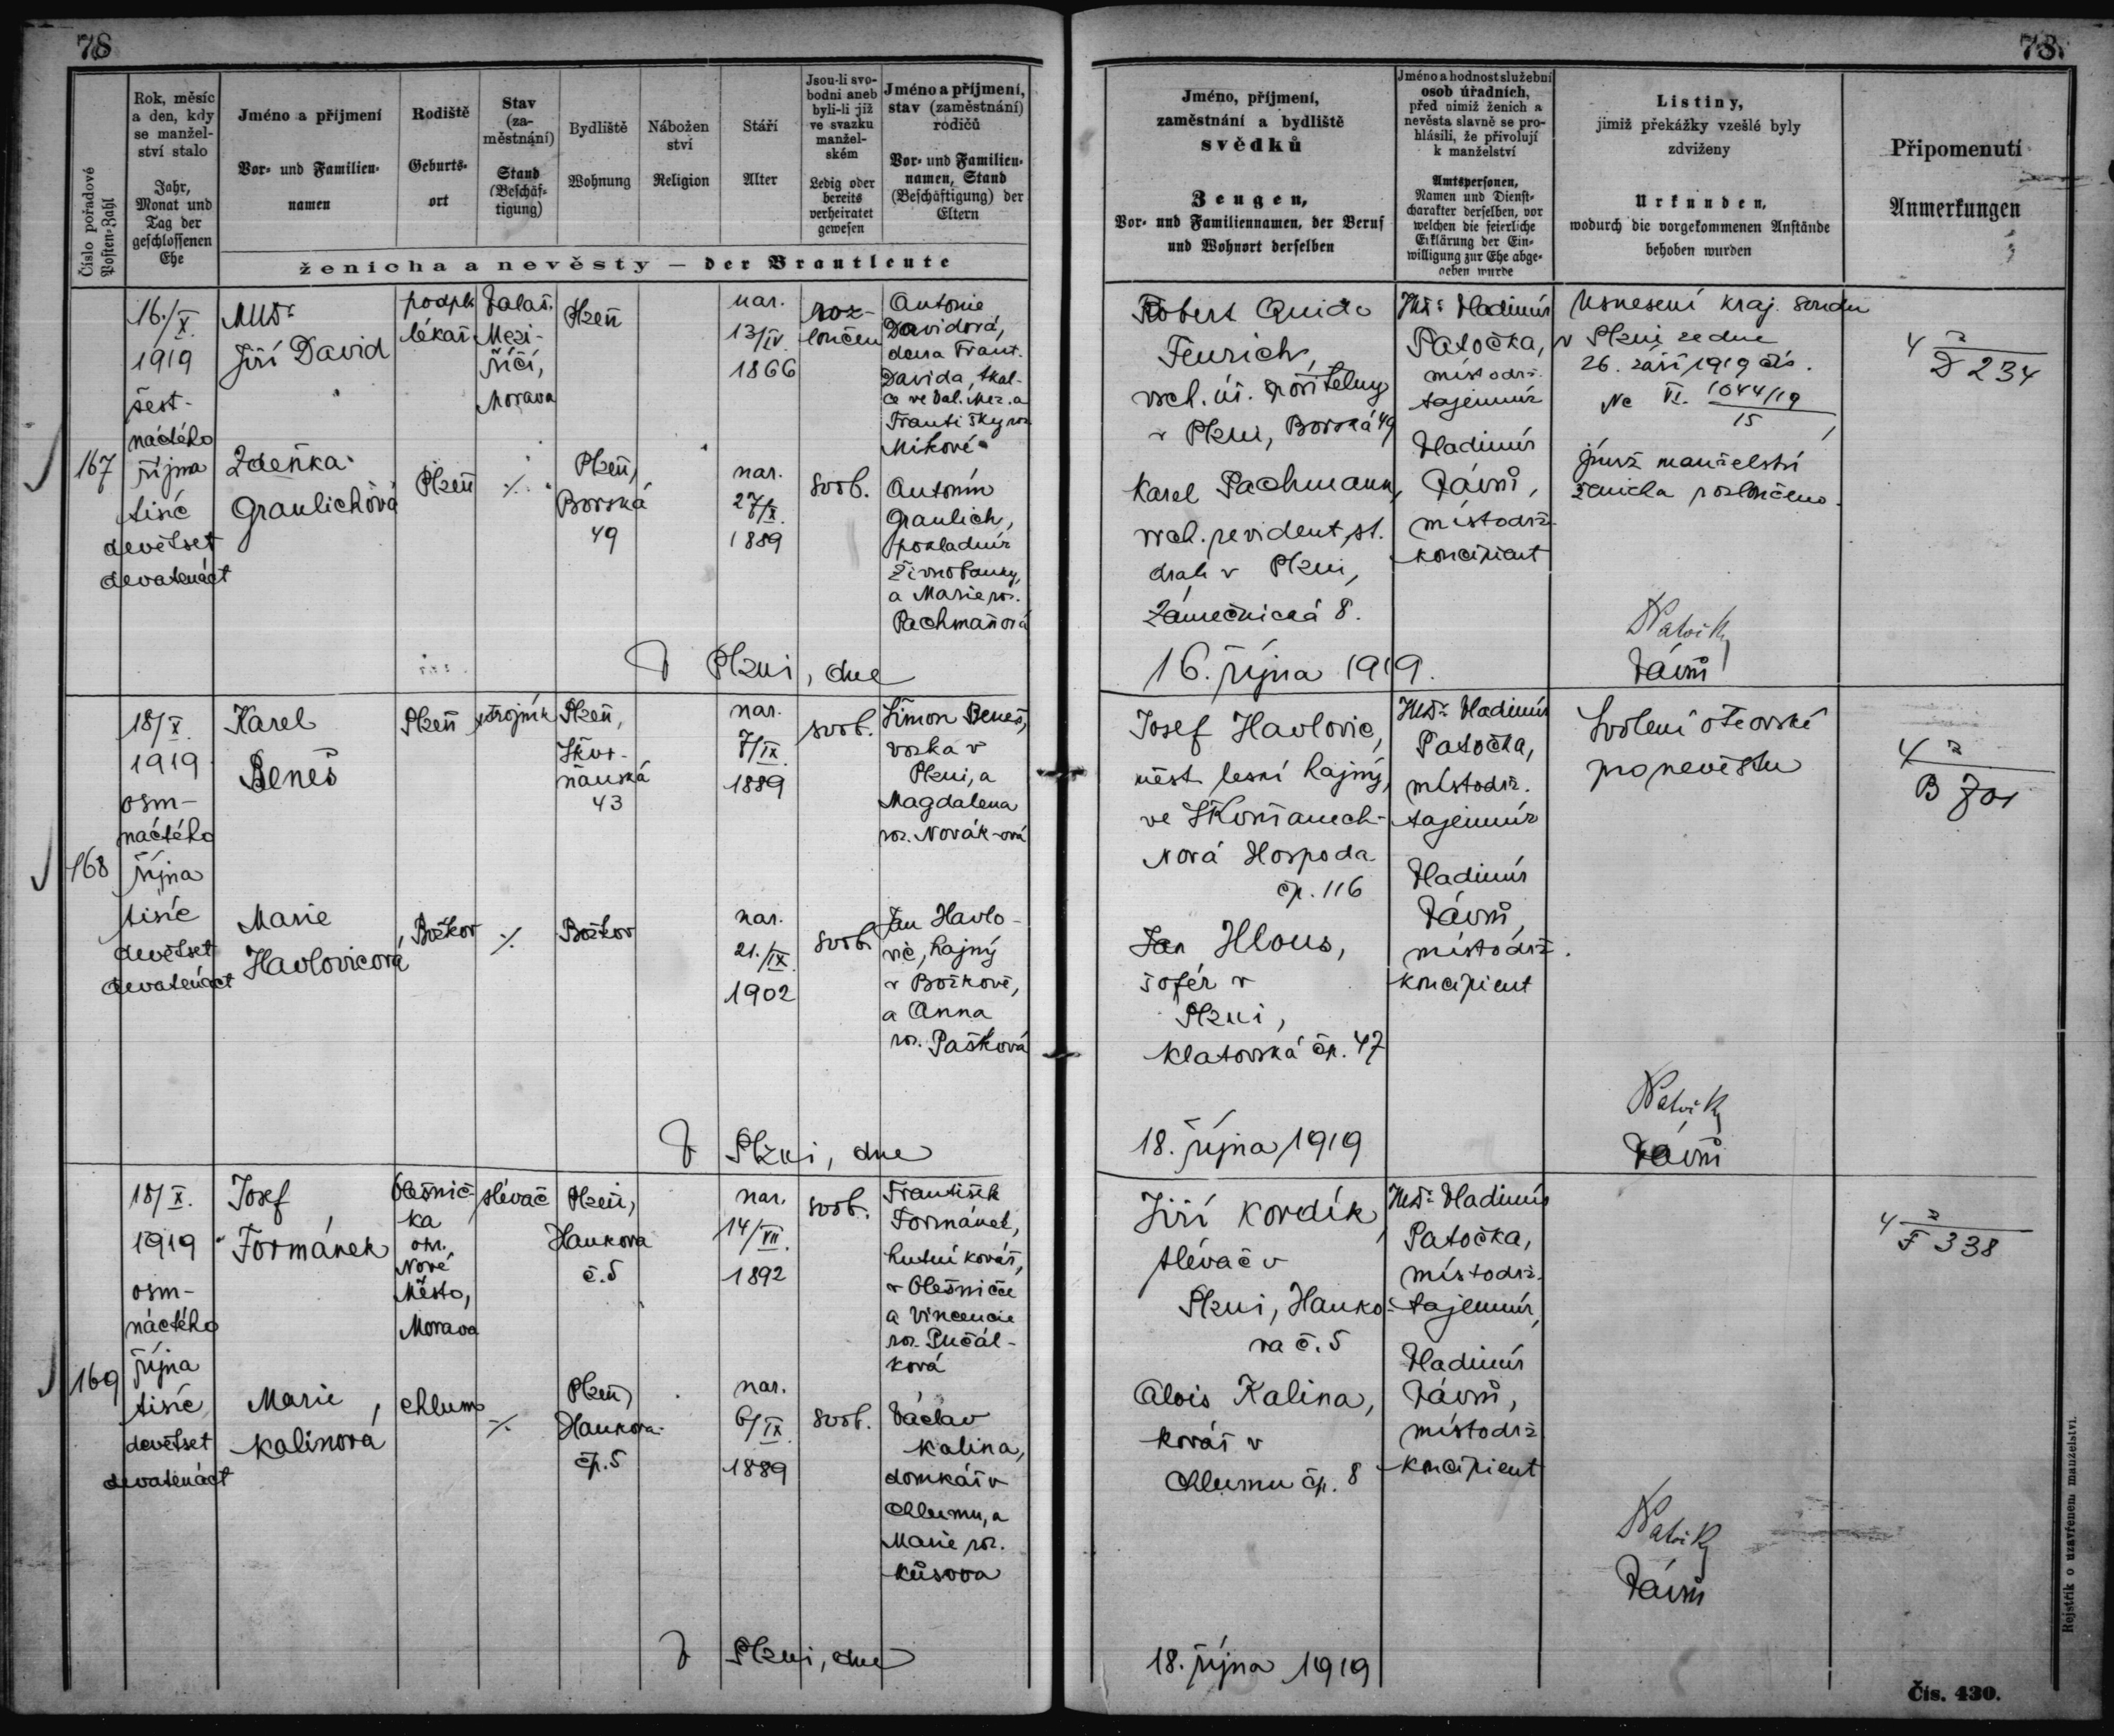 78
78.
Číslo pořadové
Posten-Zahl
Rok, měsíc
a den, kdy
se manžel-
ství stalo
Jahr,
Monat und
Tag der
geschlossenen
Ehe
Jméno a příjmení
Vor- und Familien-
namen
Rodiště
Geburts-
ort
Stav
(za-
městnání)
Stand
(Beschäf-
tigung)
Bydliště
Wohnung
Nábožen
ství
Religion
Stáří
Alter
Jsou-li svo-
bodni aneb
byli-li již
ve svazku
manžel-
ském
Ledig oder
bereits
verheiratet
gewesen
Jméno a příjmení,
stav (zaměstnání)
rodičů
Vor- und Familien-
namen, Stand
(Beschäftigung) der
Eltern
ženicha a nevěsty — der Brautleute
Jméno, příjmení,
zaměstnání a bydliště
svědků
Zeugen,
Vor- und Familiennamen, der Beruf
und Wohnort derselben
Jméno a hodnost služební
osob úřadních,
před nimiž ženich a
nevěsta slavně se pro-
hlásili, že přivolují
k manželství
Amtspersonen,
Namen und Dienst-
charakter derselben, vor
welchen die feierliche
Erklärung der Ein-
willigung zur Ehe abge-
geben wurde
Listiny,
jimiž překážky vzešlé byly
zdviženy
Urkunden,
wodurch die vorgekommenen Anstände
behoben wurden
Připomenutí
Anmerkungen
167
16./X.
1919
šest-
náctého
října
tisíc
devětset
devatenáct
MUDr
Jiří David
podplk
lékař
Valaš.
Mezi-
říčí,
Morava
Plzeň
nar.
13/IV.
1866
roz-
loučen
Antonie
Davidová,
dcera Frant.
Davida, tkal-
ce ve Val. Mez. a
Františky roz.
Mikové
Zdeňka
Graulichová
Plzeň
·/·
Plzeň,
Borská
49
nar.
27/X.
1889
svob.
Antonín
Graulich,
pokladník
Živnobanky,
a Marie roz.
Pachmaňová
V Plzni, dne
Robert Quido
Feurich,
vrch. úř. spořitelny
v Plzni, Borská 49
Karel Pachmann,
vrch. revident st.
drah v Plzni,
Zámečnická 8.
16. října 1919.
JUDr Vladimír
Patočka,
místodrž.
tajemník
Vladimír
Vávrů,
místodrž.
koncipient
Usnesení kraj. soudu
v Plzni ze dne
26. září 1919 čís.
Nc VI. 1044/19
15
jímž manželství
ženicha rozloučeno.
Patočka
Vávrů
4 2
D 234
168
18/X.
1919
osm-
náctého
října
tisíc
devětset
devatenáct
Karel
Beneš
Plzeň
strojník
Plzeň,
Skvr-
ňanská
43
nar.
7/IX.
1889
svob.
Šimon Beneš,
vozka v
Plzni, a
Magdalena
roz. Novák-ová
Marie
Havlovicová
Božkov
·/·
Božkov
nar.
21./IX.
1902
svob.
Jan Havlo-
vic, hajný
v Božkově,
a Anna
roz. Pašková
V Plzni, dne
Josef Havlovic,
měst. lesní hajný,
ve Skvrňanech-
Nová Hospoda
čp. 116
Jan Hlous,
šofér v
Plzni,
Klatovská čp. 47
18. října 1919
JUDr Vladimír
Patočka,
místodrž.
tajemník
Vladimír
Vávrů,
místodrž.
koncipient
Svolení otcovské
pro nevěstu
Patočka
Vávrů
4 2
B 701
169
18/X.
1919
osm-
náctého
října
tisíc
devětset
devatenáct
Josef
Formánek
Olešnič-
ka
okr.
Nové
Město,
Morava
slévač
Plzeň,
Hankova
č. 5
nar.
14/VII.
1892
svob.
František
Formánek,
hutní kovář,
v Olešničce
a Vincencie
roz. Pučál-
ková
Marie
Kalinová
Chlum
·/·
Plzeň,
Hankova
čp. 5
nar.
6/IX.
1889
svob.
Václav
Kalina,
domkář v
Chlumu, a
Marie roz.
Kůsova
V Plzni, dne
Jiří Kordík,
slévač v
Plzni, Hanko-
va č. 5
Alois Kalina,
kovář v
Chlumu čp. 8
18. října 1919
JUDr Vladimír
Patočka,
místodrž.
tajemník,
Vladimír
Vávrů,
místodrž.
koncipient
Patočka
Vávrů
4 2
F 338
Rejstřík o uzavřenem manželství.
Čís. 430.